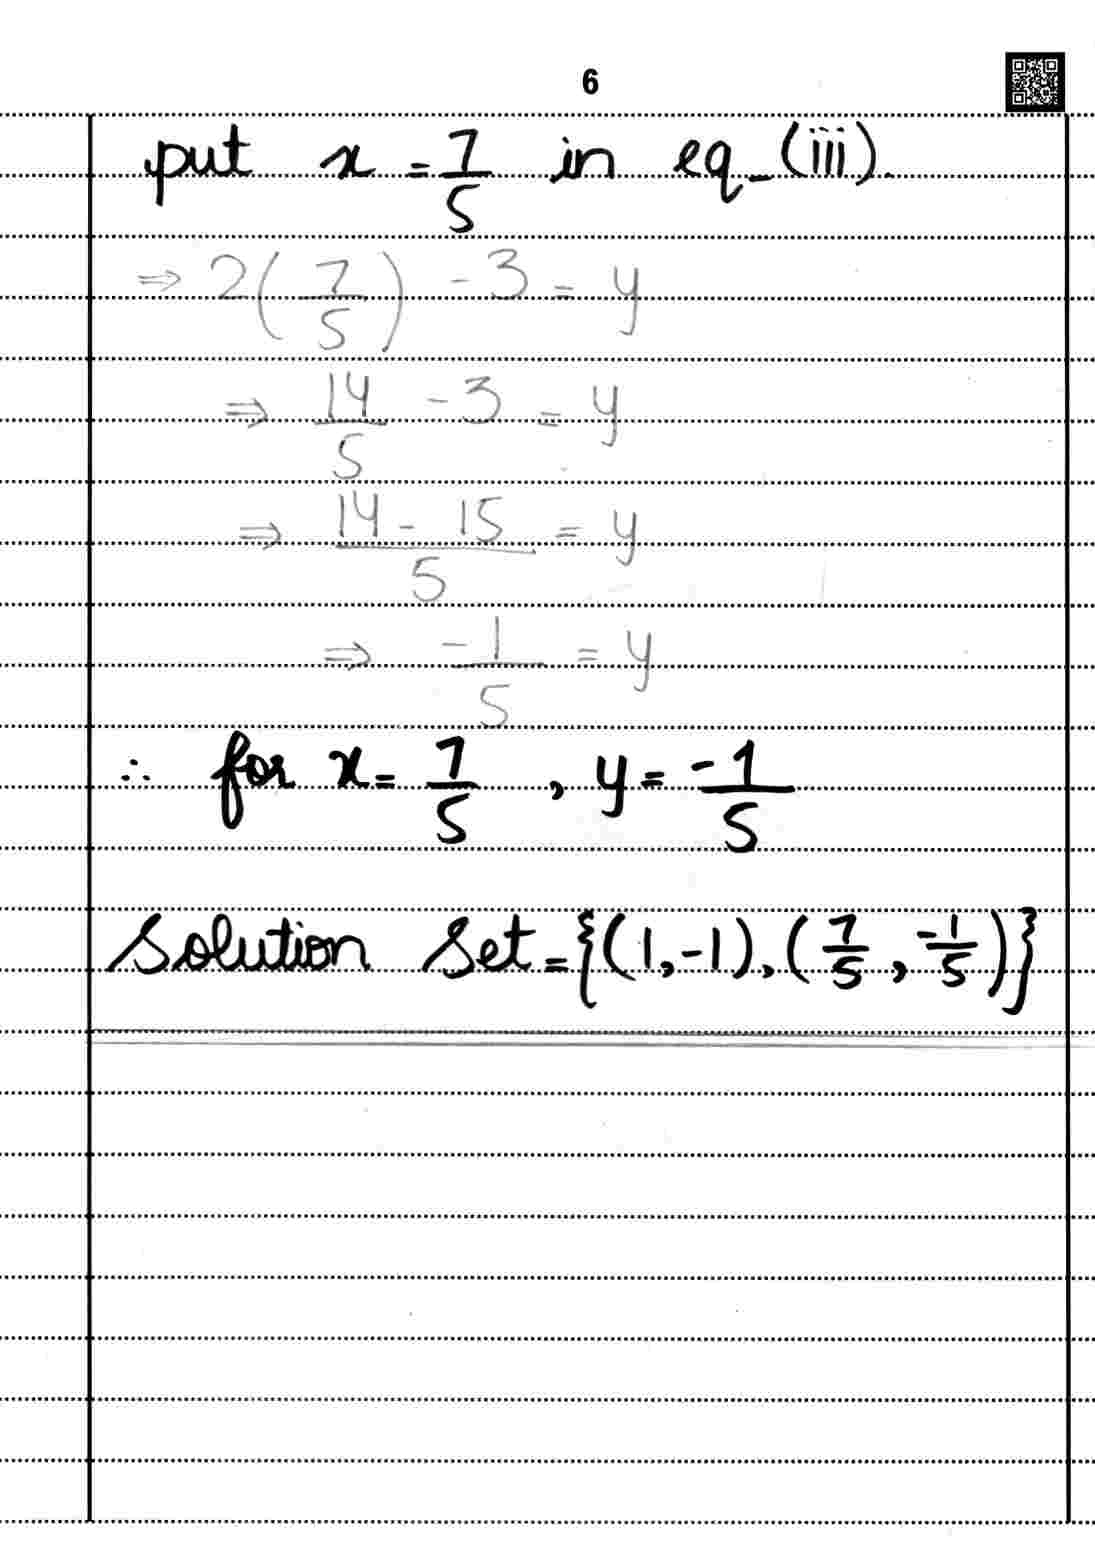 6
put x = 7/5 in eq_(iii).
⇒ 2(7/5) - 3 = y
⇒ 14/5 - 3 = y
⇒ 14 - 15/5 = y
⇒ -1/5 = y
∴ for x = 7/5 , y = -1/5
Solution Set = {(1,-1), (7/5 , -1/5)}